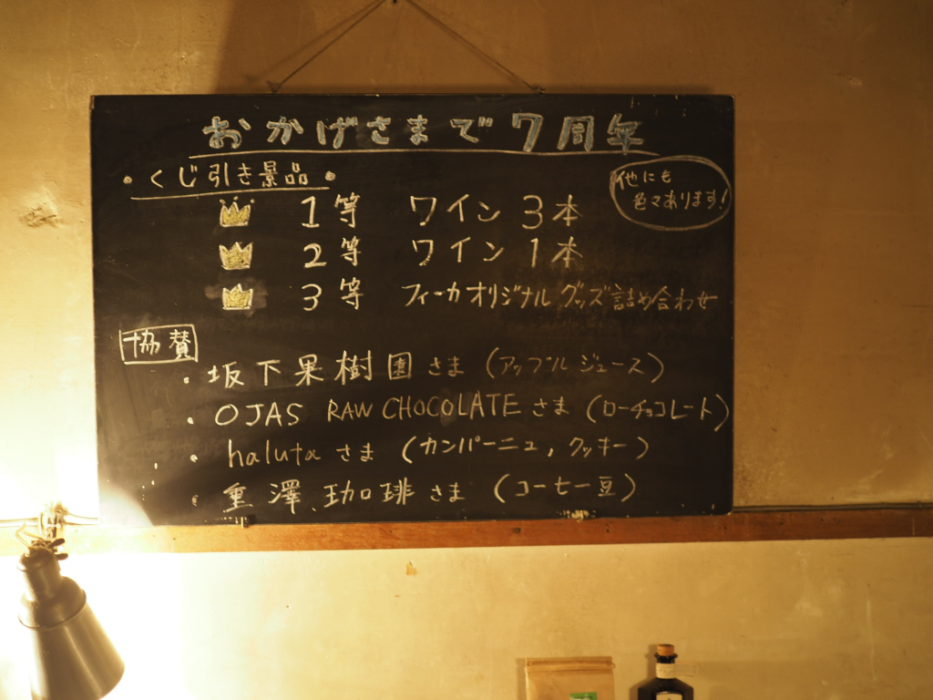 おかげさまで7周年
・くじ引き景品・
他にも
色々あります!
1等 ワイン 3本
2等 ワイン 1本
3等 フィーカオリジナルグッズ詰め合わせ
協賛
・坂下果樹園さま (アップルジュース)
・OJAS RAW CHOCOLATE さま (ローチョコレート)
・haluta さま (カンパーニュ, クッキー)
・重澤珈琲さま (コーヒー豆)